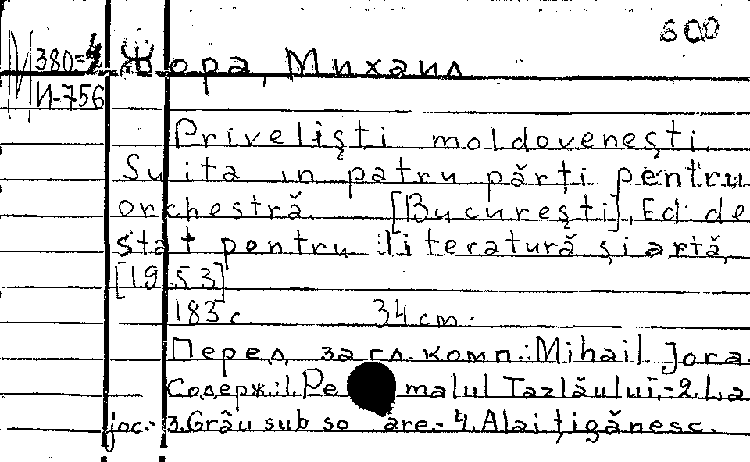 600
М 380-4 Жора, Михаил
И-756
Privelişti moldoveneşti.
Suita in patru părţi pentru
orchestră. [Bucureşti], Ed. de
stat pentru literatură şi artă,
[1953]
183 с 34 cm.
Перед загл. комп.: Mihail Jora.
Содерж.: 1. Pe malul Tazlăului.-2. La
joc.- 3. Grâu sub soare.- 4. Alai ţigănesc.